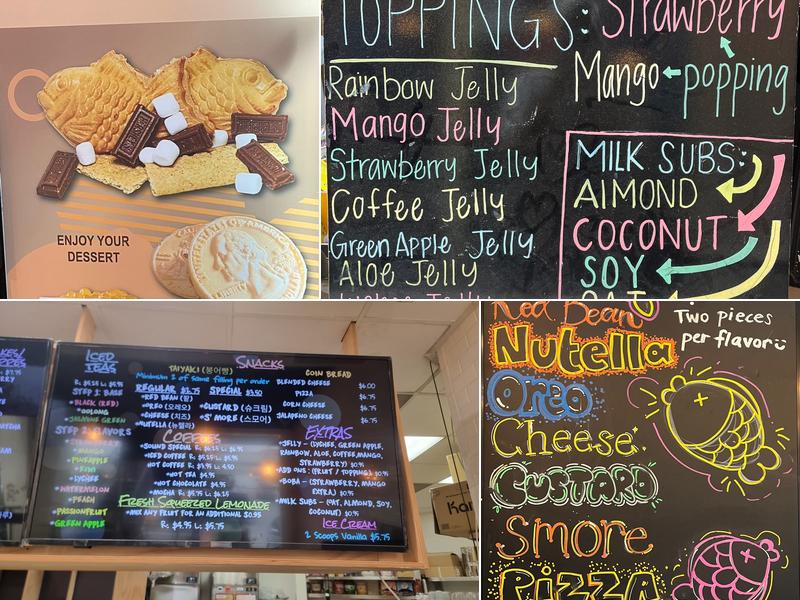 ENJOY YOUR
DESSERT
TOPPINGS: Strawberry
Mango popping
Rainbow Jelly
Mango Jelly
Strawberry Jelly
Coffee Jelly
Green Apple Jelly
Aloe Jelly
MILK SUBS:
AlMOND
COCONUT
SOY
OAT
ICED
TEAS
R. $5.25 L. $5.95
STEP 1: BASE
*BLACK (RED)
*OOLONG
*JASMINE GREEN
*MANGO
*PINEAPPLE
*KIWI
*LYCHEE
*WATERMELON
*PEACH
*PASSIONFRUIT
*GREEN APPLE
SNACKS
TAIYAKI (붕어빵)
Minimum 2 of same filling per order
REGULAR SPECIAL
*RED BEAN (팥)
*OREO (오레오)
*CHEESE (치즈)
*NUTELLA (뉴텔라)
*CUSTARD (슈크림)
*S' MORE (스모어)
COIN BREAD
BLENDED CHEESE $6.00
PIZZA $6.75
CORN CHEESE $6.75
JALAPENO CHEESE $6.75
COFFEES
*HOT TEA $4.75
*HOT CHOCOLATE $4.75
FRESH SQUEEZED LEMONADE
*MIX ANY FRUIT FOR AN ADDITIONAL $0.95
R: $4.95 L. $5.75
EXTRAS
*JELLY - (LYCHEE, GREEN APPLE,
RAINBOW, ALOE, COFFEE, MANGO,
STRAWBERRY) $0.95
*ADD ONS: (FRUIT / TOPPING) $0.95
*BOBA - (STRAWBERRY, MANGO
EXTRA) $0.95
*MILK SUBS - (OAT, ALMOND, SOY,
COCONUT) $0.95
ICE CREAM
2 Scoops Vanilla $5.75
Kar
Red Bean
Two pieces
per flavor
Nutella
Oreo
Cheese
CUSTARD
Smore
PIZZA